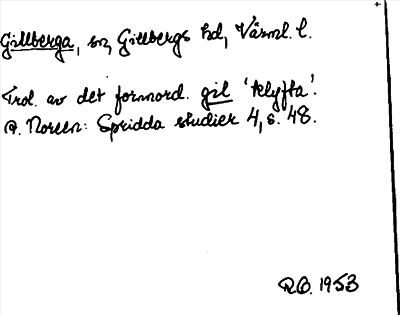 Gillberga, sn, Gillbergs hd, Värml. l.
Trol. av det fornnord. gil 'klyfta'.
A. Noreen: Spridda studier 4, s. 48.
R.O. 1953